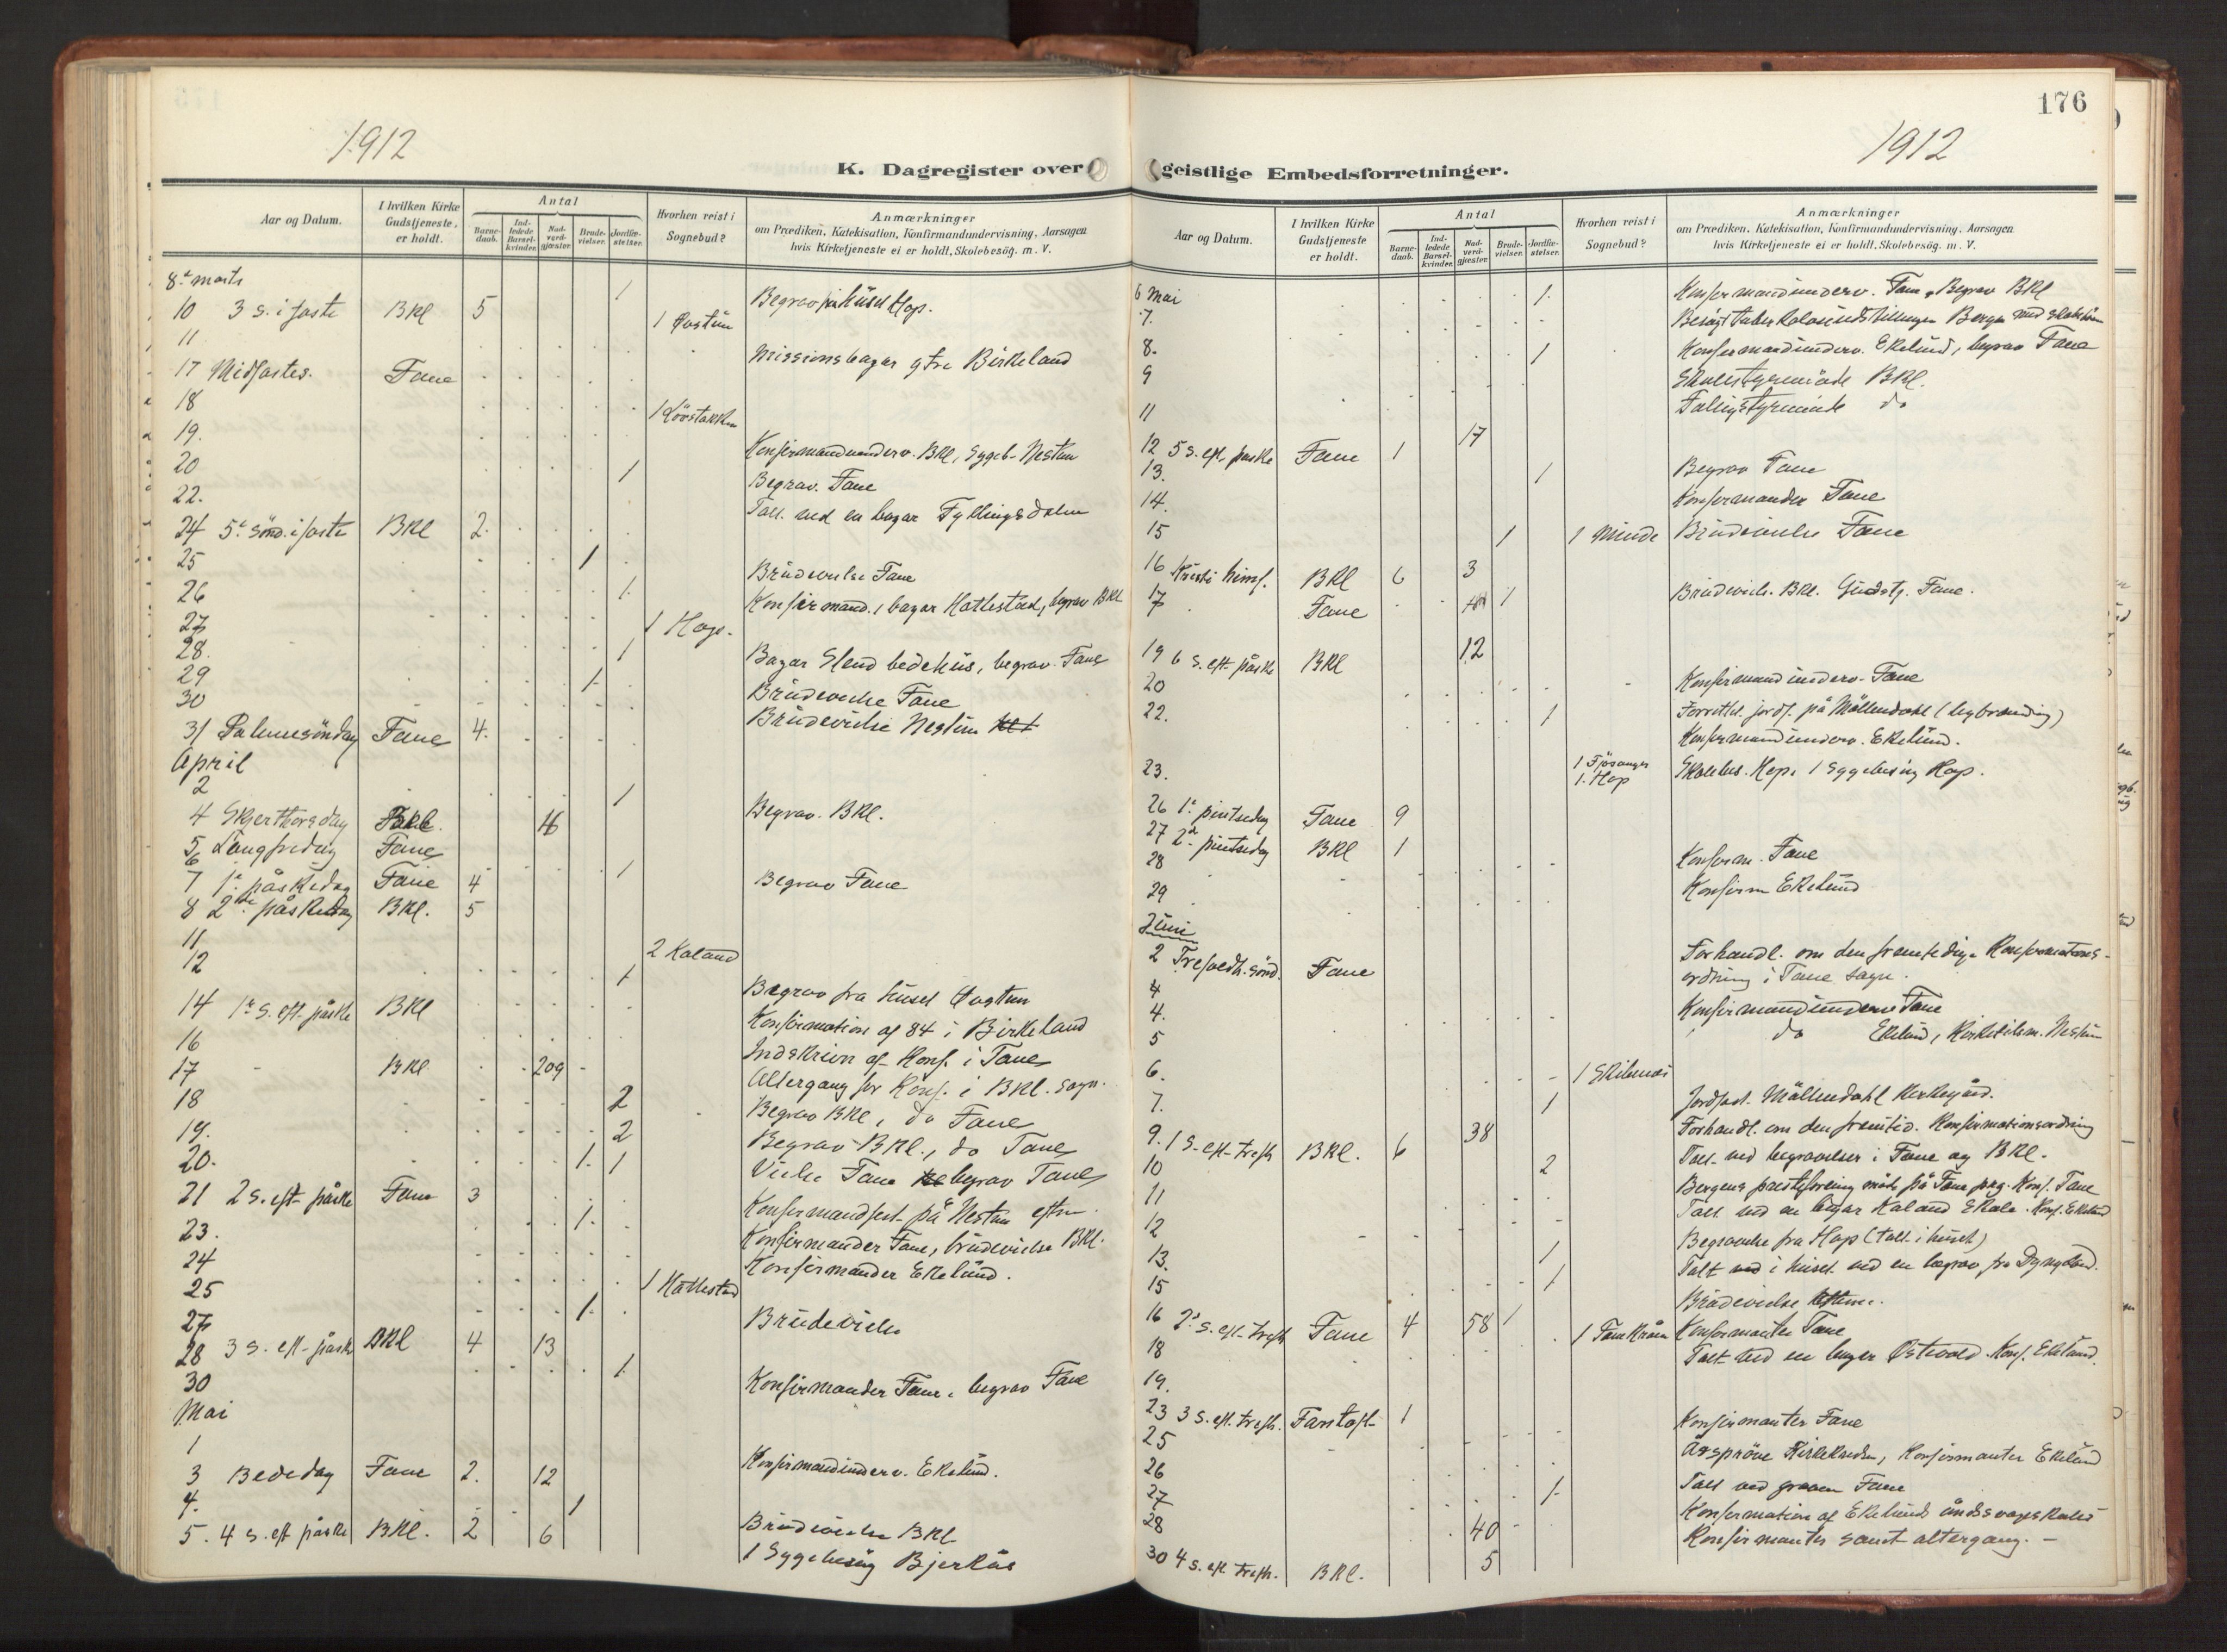 176
1912
1912
K. Dagregister over geistlige Embedsforretninger.
Aar og Datum.
I hvilken Kirke Gudstjeneste er holdt.
Antal
Barne-daab.
Ind-ledede Barsel-kvinder.
Nad-verd-gjæster.
Brude-vielser.
Jordfæ-stelser.
Hvorhen reist i Sognebud?
Anmærkninger
om Prædiken, Katekisation, Konfirmandundervisning, Aarsagen
hvis Kirketjeneste ei er holdt, Skolebesög. m. V.
8de marts 1
10 3 s. i faste BKl 5 Begrav fra huset Hop.
11
17 Midfastes. Fane Missionsbazar gtre Birkeland
18 1 Lövstakken
19.
20 1 Konfirmandunderv. BKl, Sygeb. Nestun
22. Begrav. Fane
Talt. ved en bazar Fyllingsdalen
24 5te sönd. i faste BKl 2.
25 1
26 1. Brüdevielse Fane
27 Konfirmand., bazar Hatlestad, begrav BKl
1 Hop.
28. 1
29 1. Bazar Slend bedehüs, begrav. Fane
30 Brüdevielse Fane
31 Palmesöndag Fane 4. Brüdevielse Nestün
April
2 1
4 Skjerthorsdag 16 Begrav. BKl.
5 Langfredag Fane
6 1
7 1ste påskedag Fane 4 Begrav Fane
8 2den påskedag BKl. 5
11 2 Kaland
12 1
14 1ste s. eft. påske BKl Begrav fra huset
16 Konfirmation af 84 i Birkeland
17 BKl 209 Indskrivn af Konf. i Fane
18 2 Altergang for Konf. i BKl. sogn.
19. 2 Begrav BKl, do Fane
20. 1. 1 Begrav BKl., do Fane
21 2 s. eft. påske Fane 3 Vielse Fane begrav Fane
23. 1. Konfirmandfest på Nestun eftm.
24 Konfirmander Fane, brüdevielse BKl.
25 1 Hatlestad Konfirmander Ekelünd.
27 1.
28 3 s. eft. påske BKl 4 13 Brüdevielse
30 1.
Mai Konfirmander Fane, begrav Fane
1
3 Bededag Fane 2. 12 Konfirmandünderv. Ekelünd.
4. 1
5. 4 s. eft påske BKl. 2 6 Brüdevielse BKl
1 Sygebesög Bjerkås
Aar og Datum.
I hvilken Kirke Gudstjeneste er holdt.
Antal
Barne-daab.
Ind-ledede Barsel-kvinder.
Nad-verd-gjæster.
Brude-vielser.
Jordfæ-stelser.
Hvorhen reist i Sognebud?
Anmærkninger
om Prædiken, Katekisation, Konfirmandundervisning, Aarsagen
hvis Kirketjeneste ei er holdt, Skolebesög. m. V.
6 Mai 1. Konfirmandünderv. Fane, Begrav BKl
7. Besögt Bergen
8. 1 Konfirmandünderv. Ekelünd, begrav Fane
9 Skolestyremöde BKl.
11 do
12 5 s. eft. paske Fane 1 17
13. 1 Begrav Fane
14. Konfirmander Fane
15 1 1 Minde Brüdevielse Fane
16 Kristi himf. BKl 6 3
17 Fane 1 Brüdeviels. BKl. Güdstj. Fane.
19 6 s. eft. påske BKl 12
20 Konfirmandünderv. Fane
22. 1 Forrettet jordf. på Möllendahl (ligbrænding)
Konfirmandünderv. Ekelünd.
23. 1 Fjösanger
1. Hop Skolebes. Hop, 1 Sygebesög Hop.
26 1ste pintsedag Fane 9
27 2den pintsedag BKl 1
28 Konfirm. Fane
29 Konfirm Ekelünd
Jüni
2 Trefoldh. sönd. Fane Forhandl. om den fremtidige Konfirmations-
ordning i Fane sogn.
4
4. Konfirmandünderv. Fane
5 do Ekelünd, Nestün
6. 1
7. 1 Jordfæst. Möllendahl Kirkegård.
9. 1 s. eft. trefh BKl. 6 38 Forhandl. om den fremtid. Konfirmationsordning
10 2 Talt ved begravelser i Fane og BKl.
11 Bergens presteforening möde på Fane prg. Konf. Fane
12 Talt ved en bazar Kaland Skole. Konf. Ekelünd
13. 1 Begravelse fra Hop (talt i huset)
15 1 Talt i huset ved en begrav fra
16 2de s. eft. trefh Fane 4 58 1 Brüdevielse
18 1 Fanekråen Konfirmanter Fane
19. Talt ved en bazar Östvold. Konf. Ekelünd.
23 3 s. eft. trefh. Fantoft 1
25 Konfirmanter Fane
26 Årspröve, Konfirmanter Ekelünd
27 1. Talt ved graven Fane
28 40 Konfirmation af Ekelünds åndssvageskoles
Konfirmanter samt altergang. –
30 4 s. eft. trefh. BKl. 5